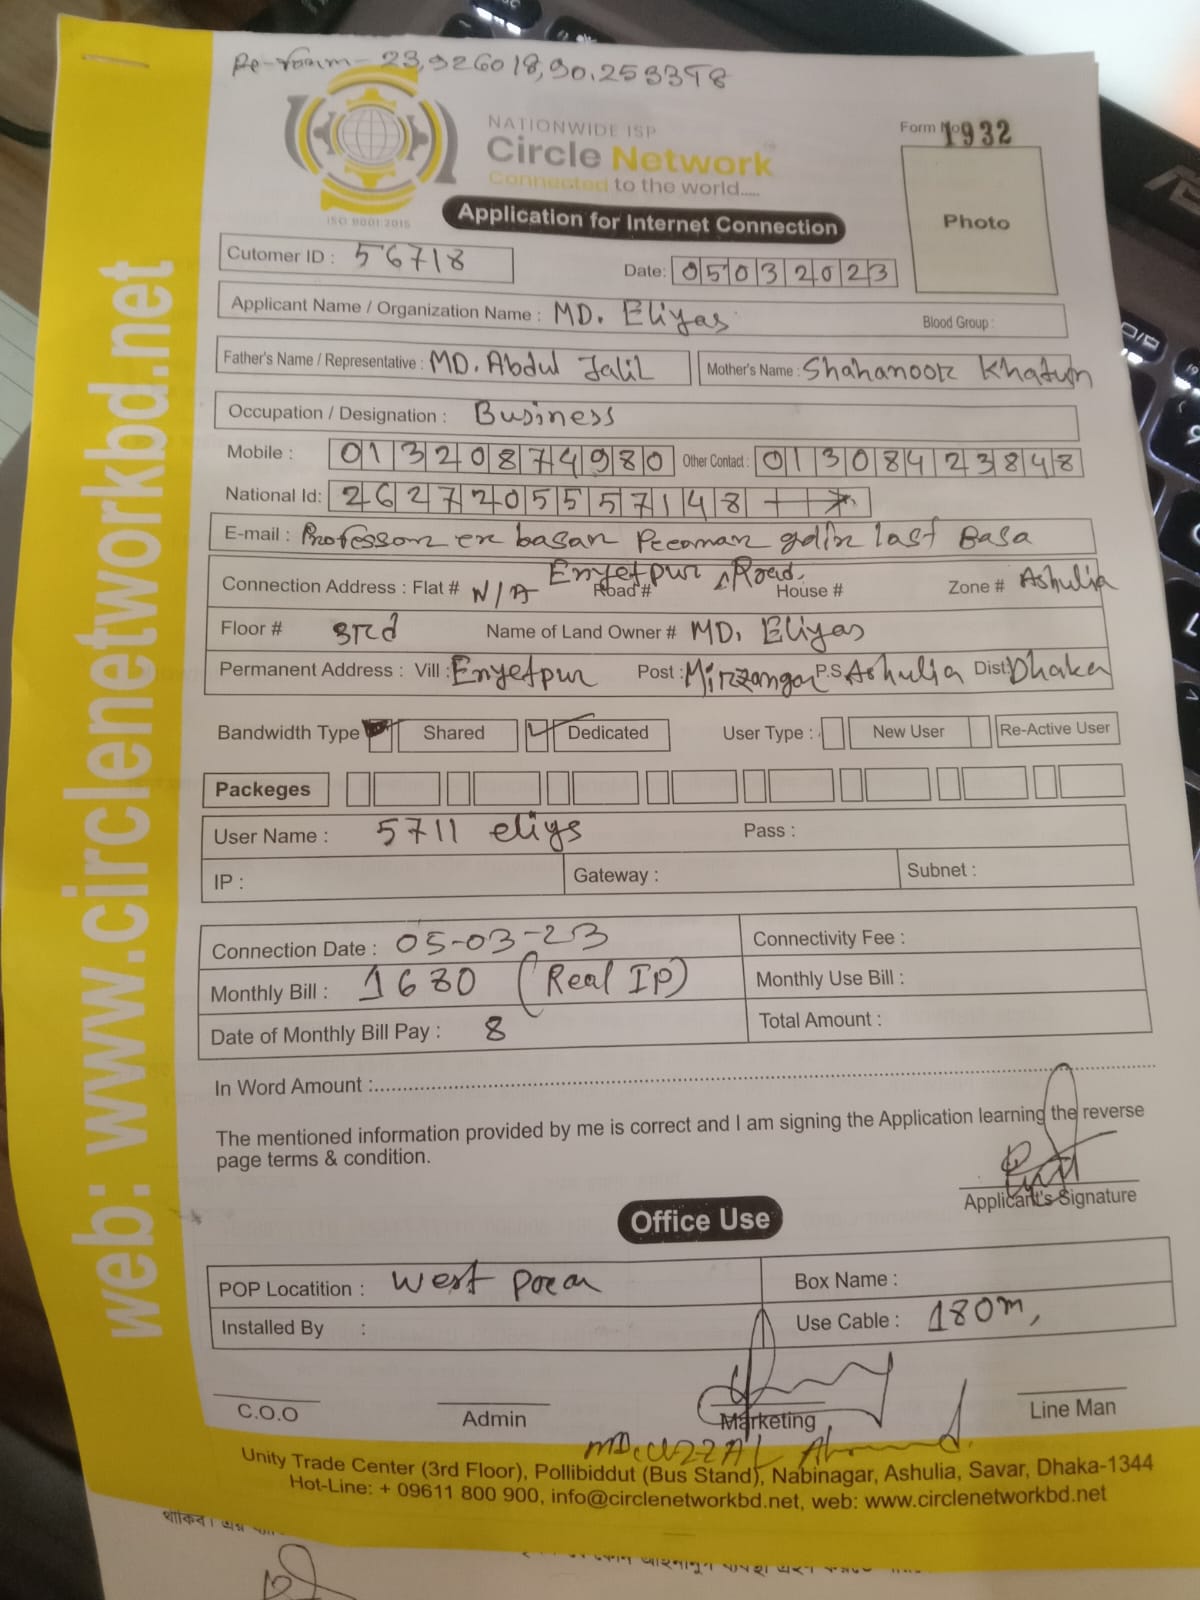 Re-form - 23,926018,90.253398
NATIONWIDE ISP
Circle Network
Connected to the world.....
ISO 9001:2015
Form No 1932
Photo
Application for Internet Connection
Cutomer ID : 56718
Date: 05032023
Applicant Name / Organization Name : MD. Eliyas
Blood Group :
Father's Name / Representative : MD. Abdul Jalil
Mother's Name : Shahanoor Khatun
Occupation / Designation : Business
Mobile : 01320874980 Other Contact : 01308423848
National Id: 2627205557148
E-mail : Professor er basar Pecomar golir last Basa
Connection Address : Flat # N/A Road # Enyetpur Road, House # Zone # Ashulia
Floor # 3rd Name of Land Owner # MD. Eliyas
Permanent Address : Vill : Enyetpur Post : Mirzangar P.S Ashulia Dist: Dhaka
Bandwidth Type Shared Dedicated User Type : New User Re-Active User
Packeges
User Name : 5711 eliys Pass :
IP : Gateway : Subnet :
Connection Date : 05-03-23 Connectivity Fee :
Monthly Bill : 1680 (Real IP) Monthly Use Bill :
Date of Monthly Bill Pay : 8 Total Amount :
In Word Amount :
The mentioned information provided by me is correct and I am signing the Application learning the reverse
page terms & condition.
Applicant's Signature
Office Use
POP Locatition : West Para Box Name :
Installed By : Use Cable : 180m,
C.O.O Admin Marketing Line Man
MD. UZZAL Ahmed
Unity Trade Center (3rd Floor), Pollibiddut (Bus Stand), Nabinagar, Ashulia, Savar, Dhaka-1344
Hot-Line: + 09611 800 900, info@circlenetworkbd.net, web: www.circlenetworkbd.net
web: www.circlenetworkbd.net